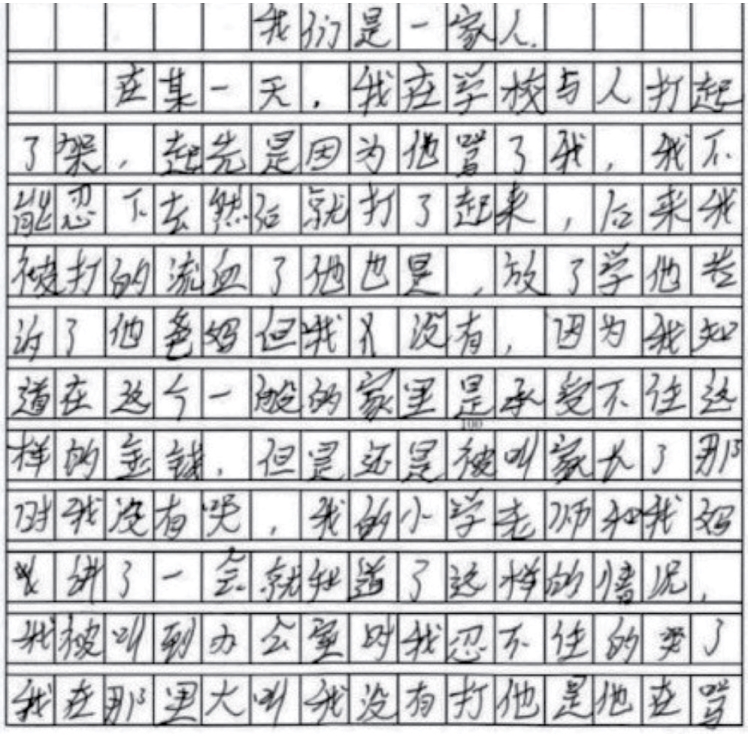 我们是一家人.
在某一天,我在学校与人打起
了架,起先是因为他骂了我,我不
能忍下去然后就打了起来,后来我
被打的流血了他也是,放了学他告
诉了他爸妈但我没有,因为我知
道在这个一般的家里是承受不住这
100
样的金钱,但是还是被叫家长了那
时我没有哭,我的小学老师和我妈
讲了一会就知道了这样的情况,
我被叫到办公室时我忍不住的哭了
我在那里大叫我没有打他是他在骂